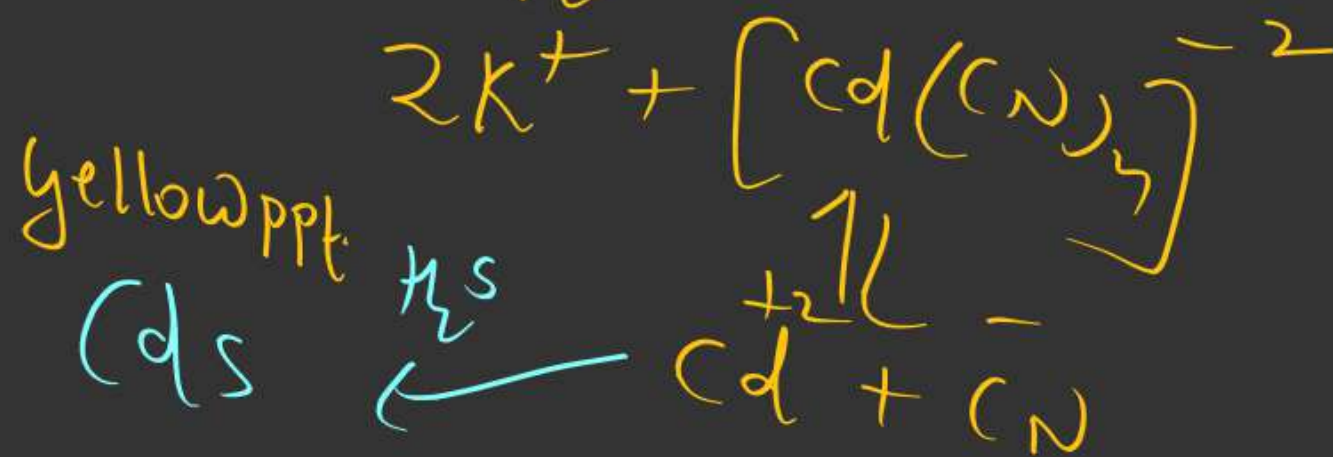 2K⁺ + [Cd(CN)₄]⁻²
yellow ppt.
⇌
CdS ← H₂S Cd⁺² + CN⁻